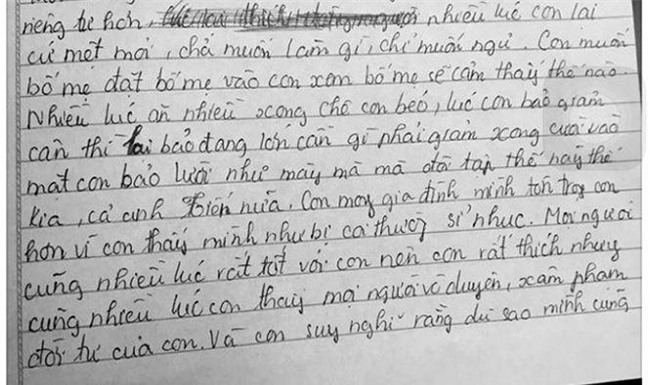 riêng tư hơn, nhiều lúc con lại
cứ mệt mỏi, chả muốn làm gì, chỉ muốn ngủ. Con muốn
bố mẹ đặt bố mẹ vào con xem bố mẹ sẽ cảm thấy thế nào.
Nhiều lúc ăn nhiều xong chê con béo, lúc con bảo giảm
cân thì lại bảo đang lớn cần gì phải giảm xong cười vào
mặt con bảo lười như mày mà mà đòi tập thế này thế
kia, cả anh nữa. Con mong gia đình mình tôn trọng con
hơn vì con thấy mình như bị cả thường sỉ nhục. Mọi người
cũng nhiều lúc rất tốt với con nên con rất thích nhưng
cũng nhiều lúc con thấy mọi người vô duyên, xâm phạm
đời tư của con. Và con suy nghĩ rằng dù sao mình cũng